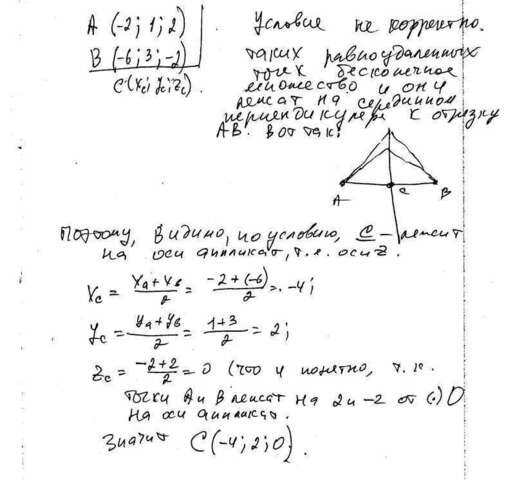 A (-2; 1; 2)
B (-6; 3; -2)
C (xc; yc; zc)
Условие не корректно.
таких равноудаленных
точек бесконечное
множество и они
лежат на серединном
перпендикуляре к отрезку
AB. Вот так:
A C B
Поэтому, видимо, по условию, C – лежит
на оси аппликат, т.е. оси Z.
Xc = (Xa + Xв)/2 = (-2 + (-6))/2 = -4;
Yc = (Ya + Yв)/2 = (1+3)/2 = 2;
Zc = (-2+2)/2 = 0 (что и понятно, т.к.
точки A и B лежат на 2 и -2 от (.) O
на оси аппликат.
Значит C(-4; 2; 0).